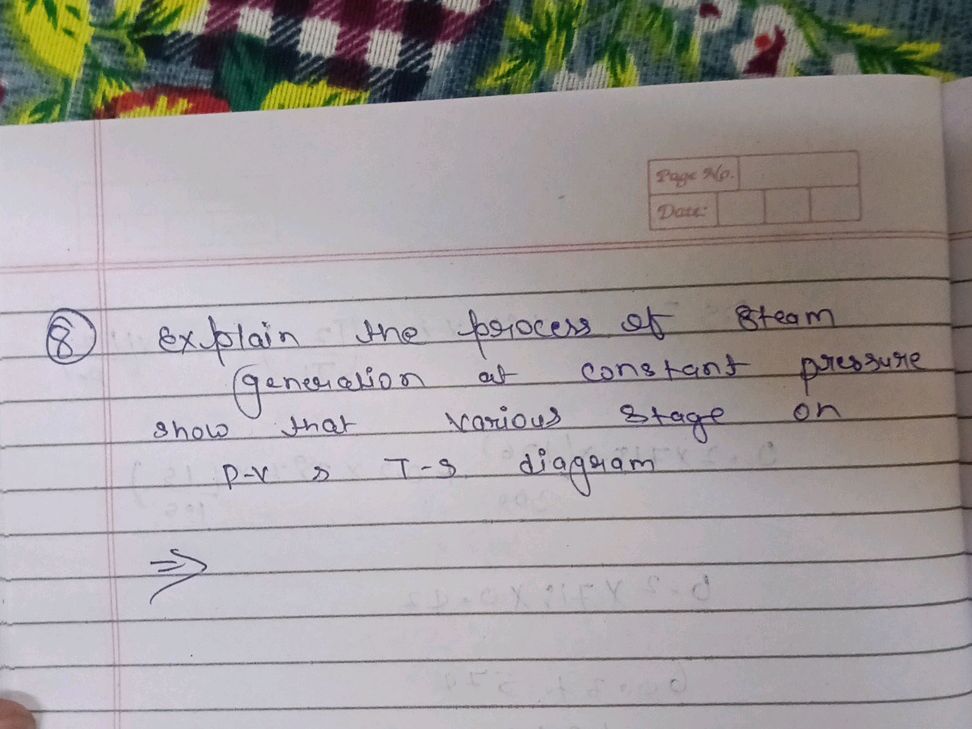 Page No.
Date:
8 Explain the process of steam
generation at constant pressure
show that various stage on
P-V & T-S diagram
⇒